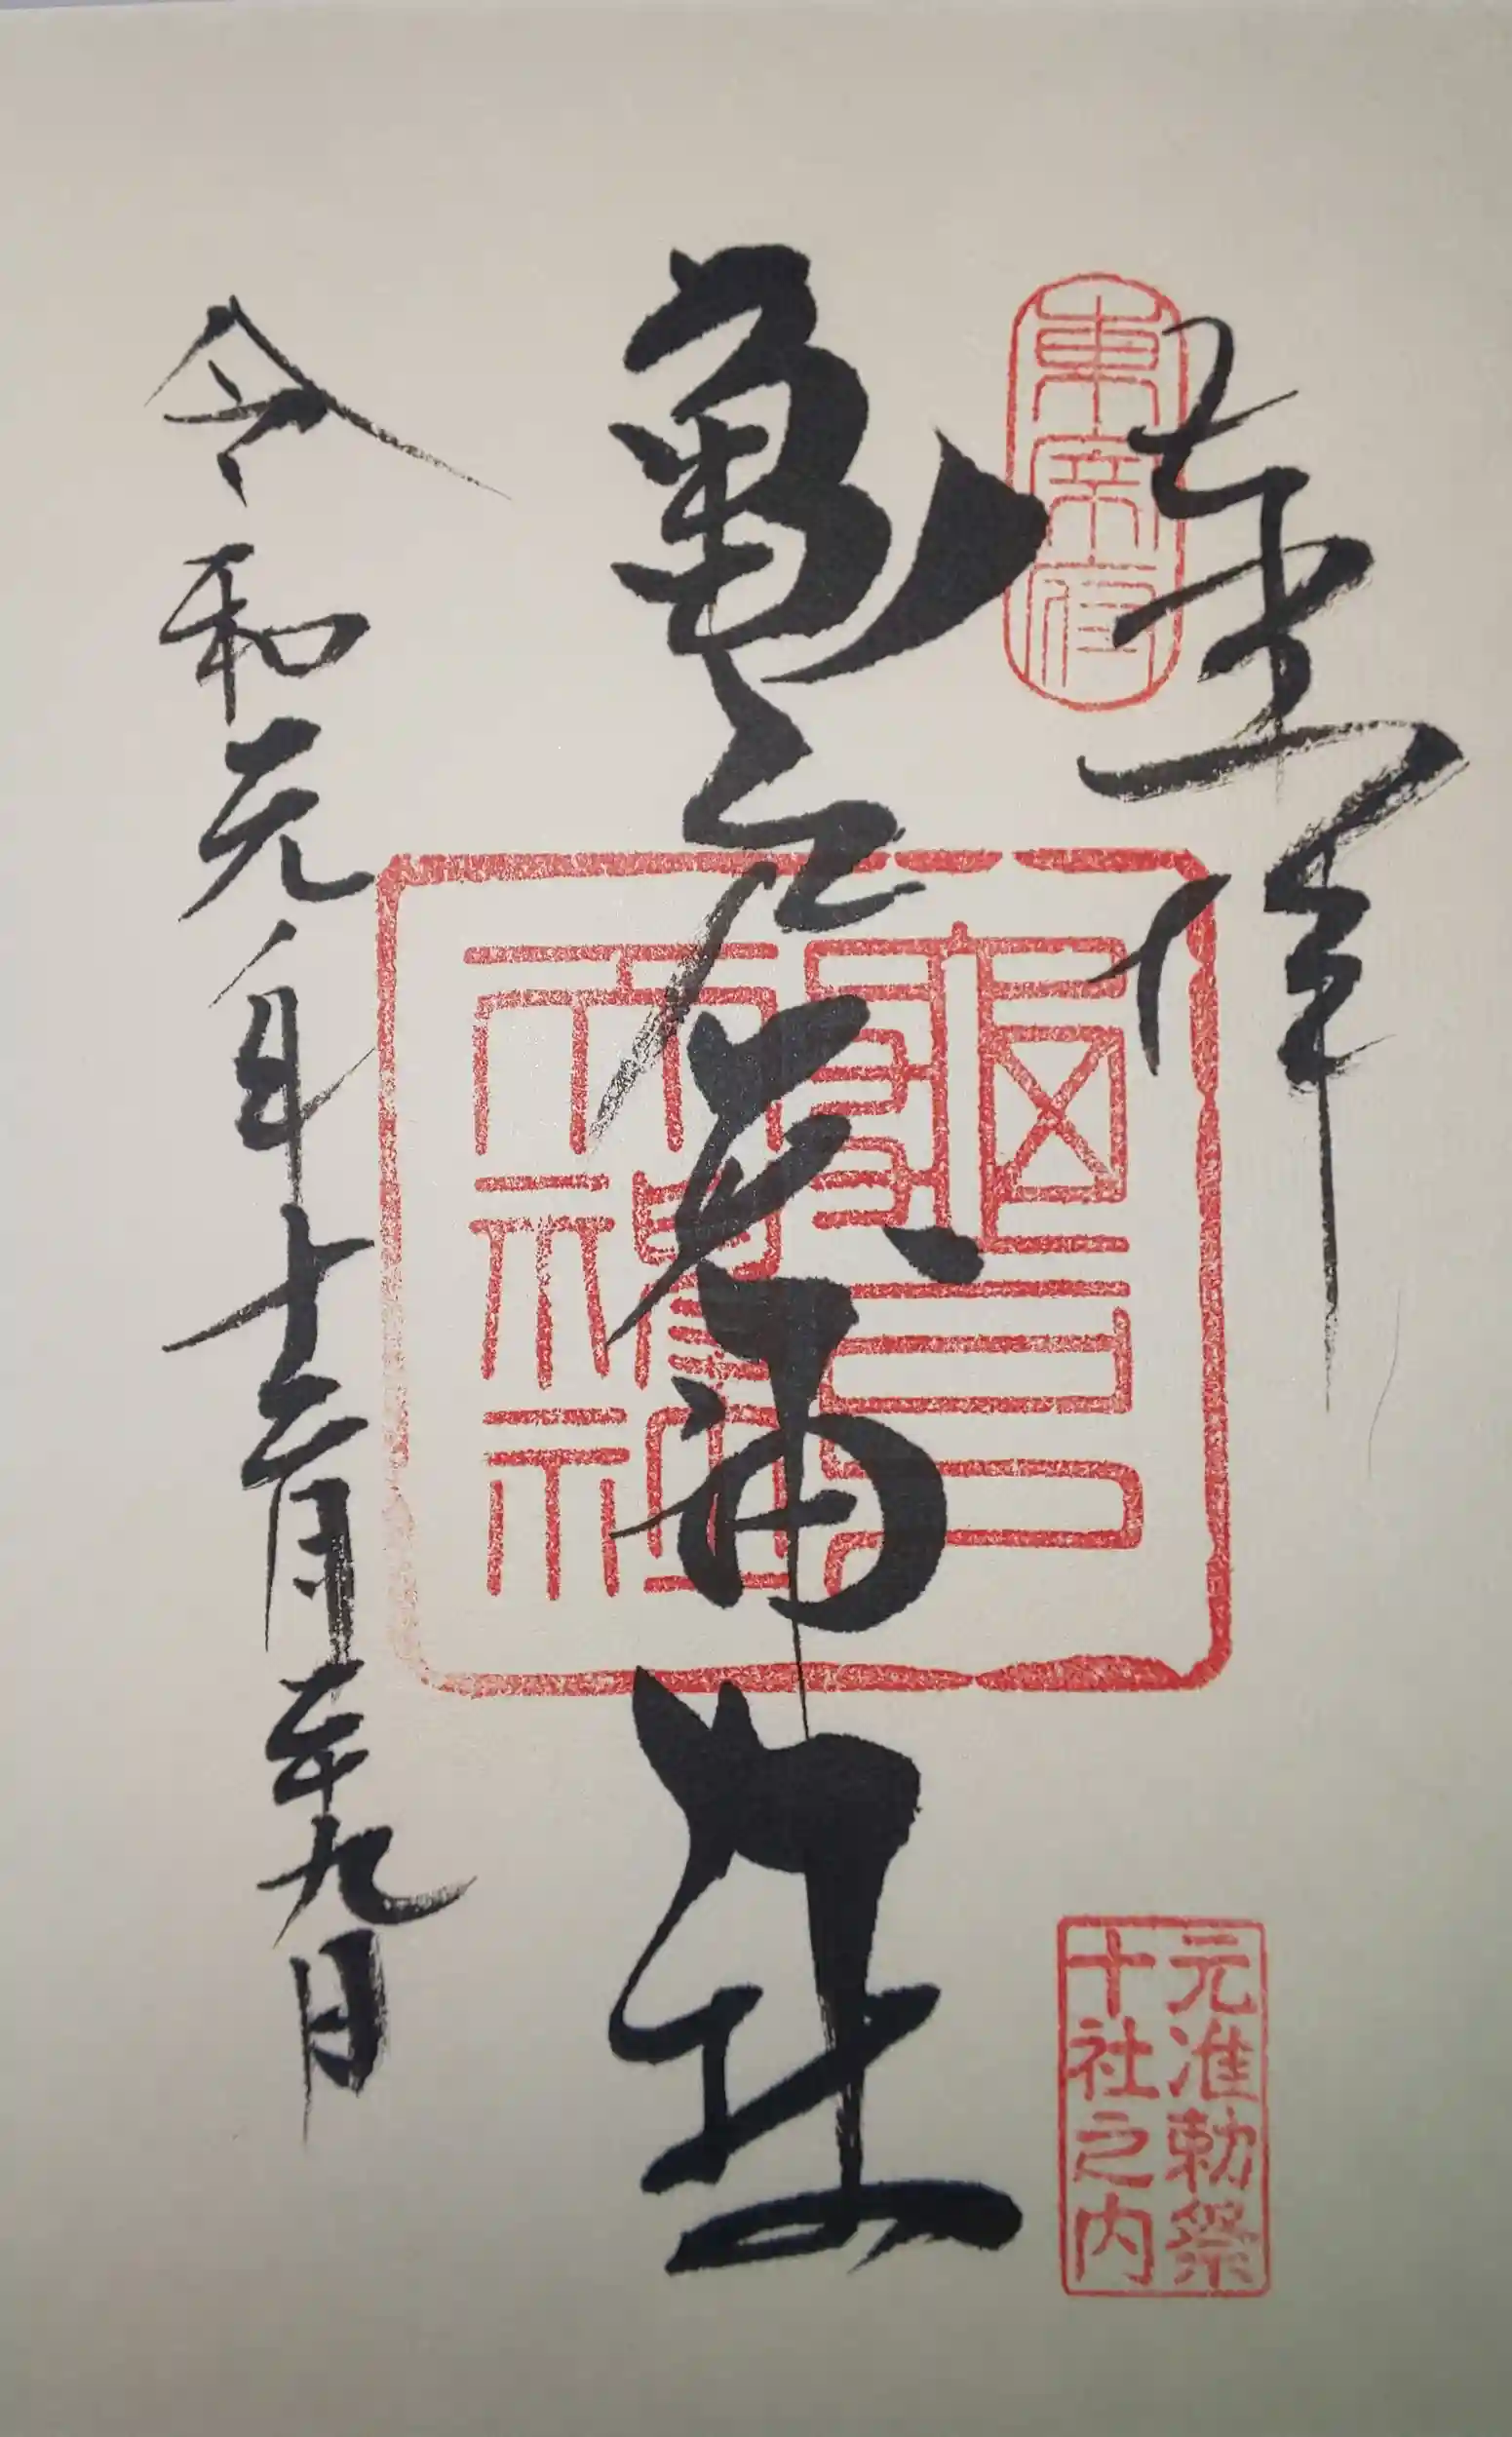 奉拝
東宰府
亀戸天神社
龜戸
天神社
元准勅祭
十社之内
令和元年十二月二十九日